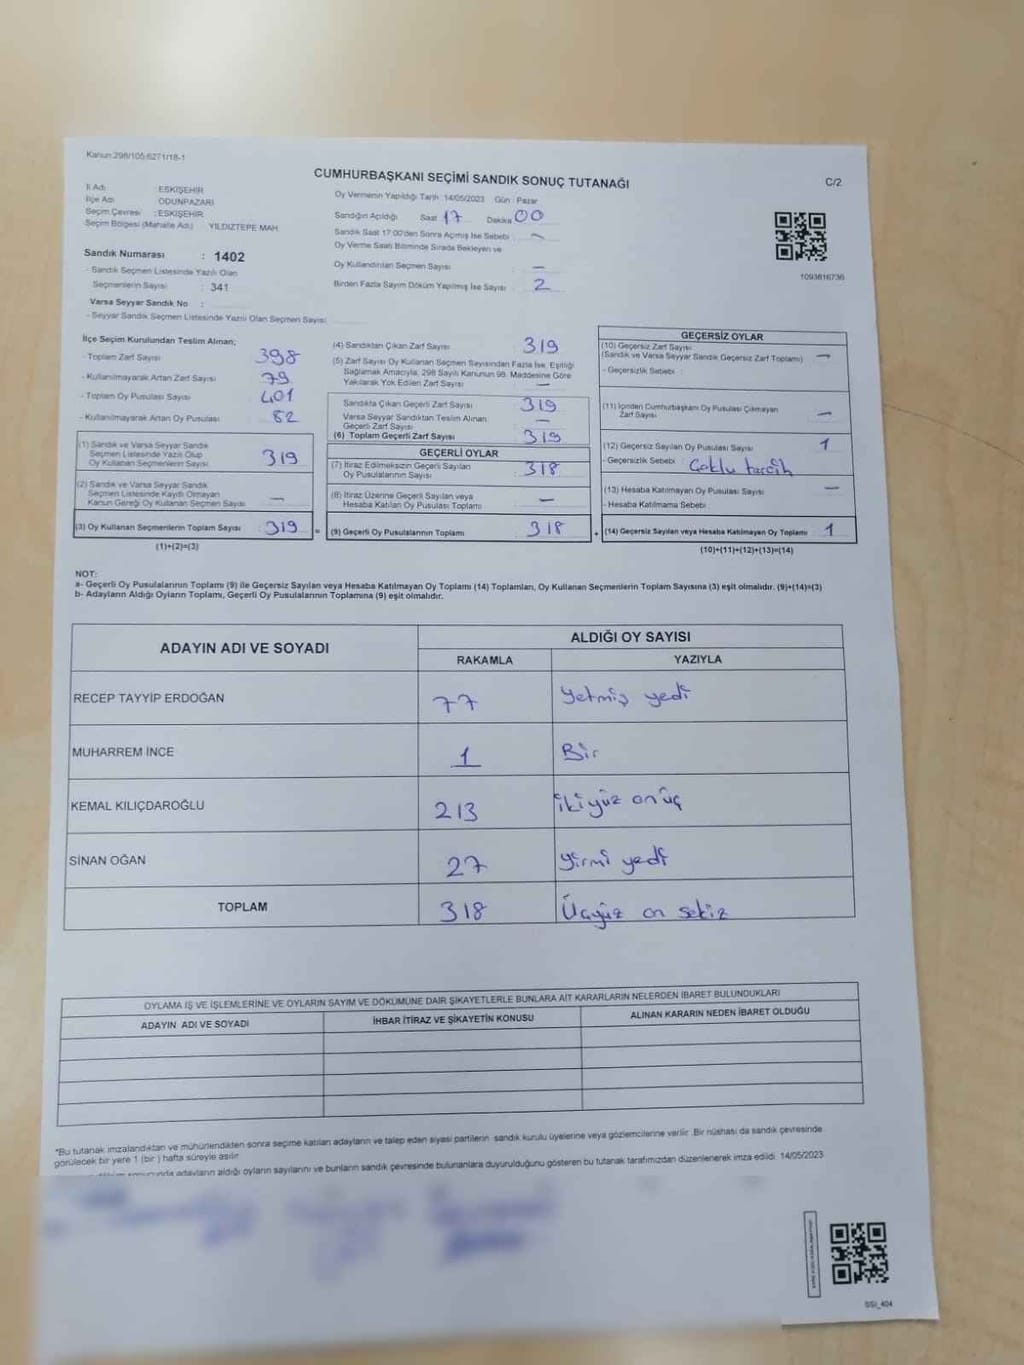 Kanun:298/105;6271/18-1
CUMHURBAŞKANI SEÇİMİ SANDIK SONUÇ TUTANAĞI
C/2
İl Adı : ESKİŞEHİR
İlçe Adı : ODUNPAZARI
Seçim Çevresi : ESKİŞEHİR
Seçim Bölgesi (Mahalle Adı) YILDIZTEPE MAH
Sandık Numarası : 1402
- Sandık Seçmen Listesinde Yazılı Olan
Seçmenlerin Sayısı : 341
Varsa Seyyar Sandık No :
- Seyyar Sandık Seçmen Listesinde Yazılı Olan Seçmen Sayısı
Oy Vermenin Yapıldığı Tarih :14/05/2023 Gün : Pazar
Sandığın Açıldığı Saat 17 Dakika 00
Sandık Saat 17:00'den Sonra Açılmış İse Sebebi : —
Oy Verme Saati Bitiminde Sırada Bekleyen ve
Oy Kullandırılan Seçmen Sayısı : —
Birden Fazla Sayım Döküm Yapılmış İse Sayısı : 2
1093616736
İlçe Seçim Kurulundan Teslim Alınan;
- Toplam Zarf Sayısı : 398
- Kullanılmayarak Artan Zarf Sayısı : 79
- Toplam Oy Pusulası Sayısı : 401
- Kullanılmayarak Artan Oy Pusulası : 82
(1) Sandık ve Varsa Seyyar Sandık
Seçmen Listesinde Yazılı Olup
Oy Kullanan Seçmenlerin Sayısı : 319
(2) Sandık ve Varsa Seyyar Sandık
Seçmen Listesinde Kayıtlı Olmayan
Kanun Gereği Oy Kullanan Seçmen Sayısı : —
(3) Oy Kullanan Seçmenlerin Toplam Sayısı : 319 =
(1)+(2)=(3)
(4) Sandıktan Çıkan Zarf Sayısı : 319
(5) Zarf Sayısı Oy Kullanan Seçmen Sayısından Fazla İse, Eşitliği
Sağlamak Amacıyla, 298 Sayılı Kanunun 98. Maddesine Göre
Yakılarak Yok Edilen Zarf Sayısı : —
Sandıkta Çıkan Geçerli Zarf Sayısı : 319
Varsa Seyyar Sandıktan Teslim Alınan
Geçerli Zarf Sayısı : —
(6) Toplam Geçerli Zarf Sayısı : 319
GEÇERLİ OYLAR
(7) İtiraz Edilmeksizin Geçerli Sayılan
Oy Pusulalarının Sayısı : 318
(8) İtiraz Üzerine Geçerli Sayılan veya
Hesaba Katılan Oy Pusulası Toplamı : —
(9) Geçerli Oy Pusulalarının Toplamı : 318 +
GEÇERSİZ OYLAR
(10) Geçersiz Zarf Sayısı
(Sandık ve Varsa Seyyar Sandık Geçersiz Zarf Toplamı) : —
- Geçersizlik Sebebi :
(11) İçinden Cumhurbaşkanı Oy Pusulası Çıkmayan
Zarf Sayısı : —
(12) Geçersiz Sayılan Oy Pusulası Sayısı : 1
- Geçersizlik Sebebi : Çoklu tercih
(13) Hesaba Katılmayan Oy Pusulası Sayısı : —
- Hesaba Katılmama Sebebi :
(14) Geçersiz Sayılan veya Hesaba Katılmayan Oy Toplamı : 1
(10)+(11)+(12)+(13)=(14)
NOT:
a- Geçerli Oy Pusulalarının Toplamı (9) ile Geçersiz Sayılan veya Hesaba Katılmayan Oy Toplamı (14) Toplamları, Oy Kullanan Seçmenlerin Toplam Sayısına (3) eşit olmalıdır. (9)+(14)=(3)
b- Adayların Aldığı Oyların Toplamı, Geçerli Oy Pusulalarının Toplamına (9) eşit olmalıdır.
ADAYIN ADI VE SOYADI
ALDIĞI OY SAYISI
RAKAMLA YAZIYLA
RECEP TAYYİP ERDOĞAN 77 Yetmiş yedi
MUHARREM İNCE 1 Bir
KEMAL KILIÇDAROĞLU 213 İkiyüz onüç
SİNAN OĞAN 27 Yirmi yedi
TOPLAM 318 Üçyüz on sekiz
OYLAMA İŞ VE İŞLEMLERİNE VE OYLARIN SAYIM VE DÖKÜMÜNE DAİR ŞİKAYETLERLE BUNLARA AİT KARARLARIN NELERDEN İBARET BULUNDUKLARI
ADAYIN ADI VE SOYADI İHBAR İTİRAZ VE ŞİKAYETİN KONUSU ALINAN KARARIN NEDEN İBARET OLDUĞU
*Bu tutanak imzalandıktan ve mühürlendikten sonra seçime katılan adayların ve talep eden siyasi partilerin sandık kurulu üyelerine veya gözlemcilerine verilir. Bir nüshası da sandık çevresinde
görülecek bir yere 1 (bir) hafta süreyle asılır.
adayların aldığı oyların sayılarını ve bunların sandık çevresinde bulunanlara duyurulduğunu gösteren bu tutanak tarafımızdan düzenlenerek imza edildi. 14/05/2023
SSI_404